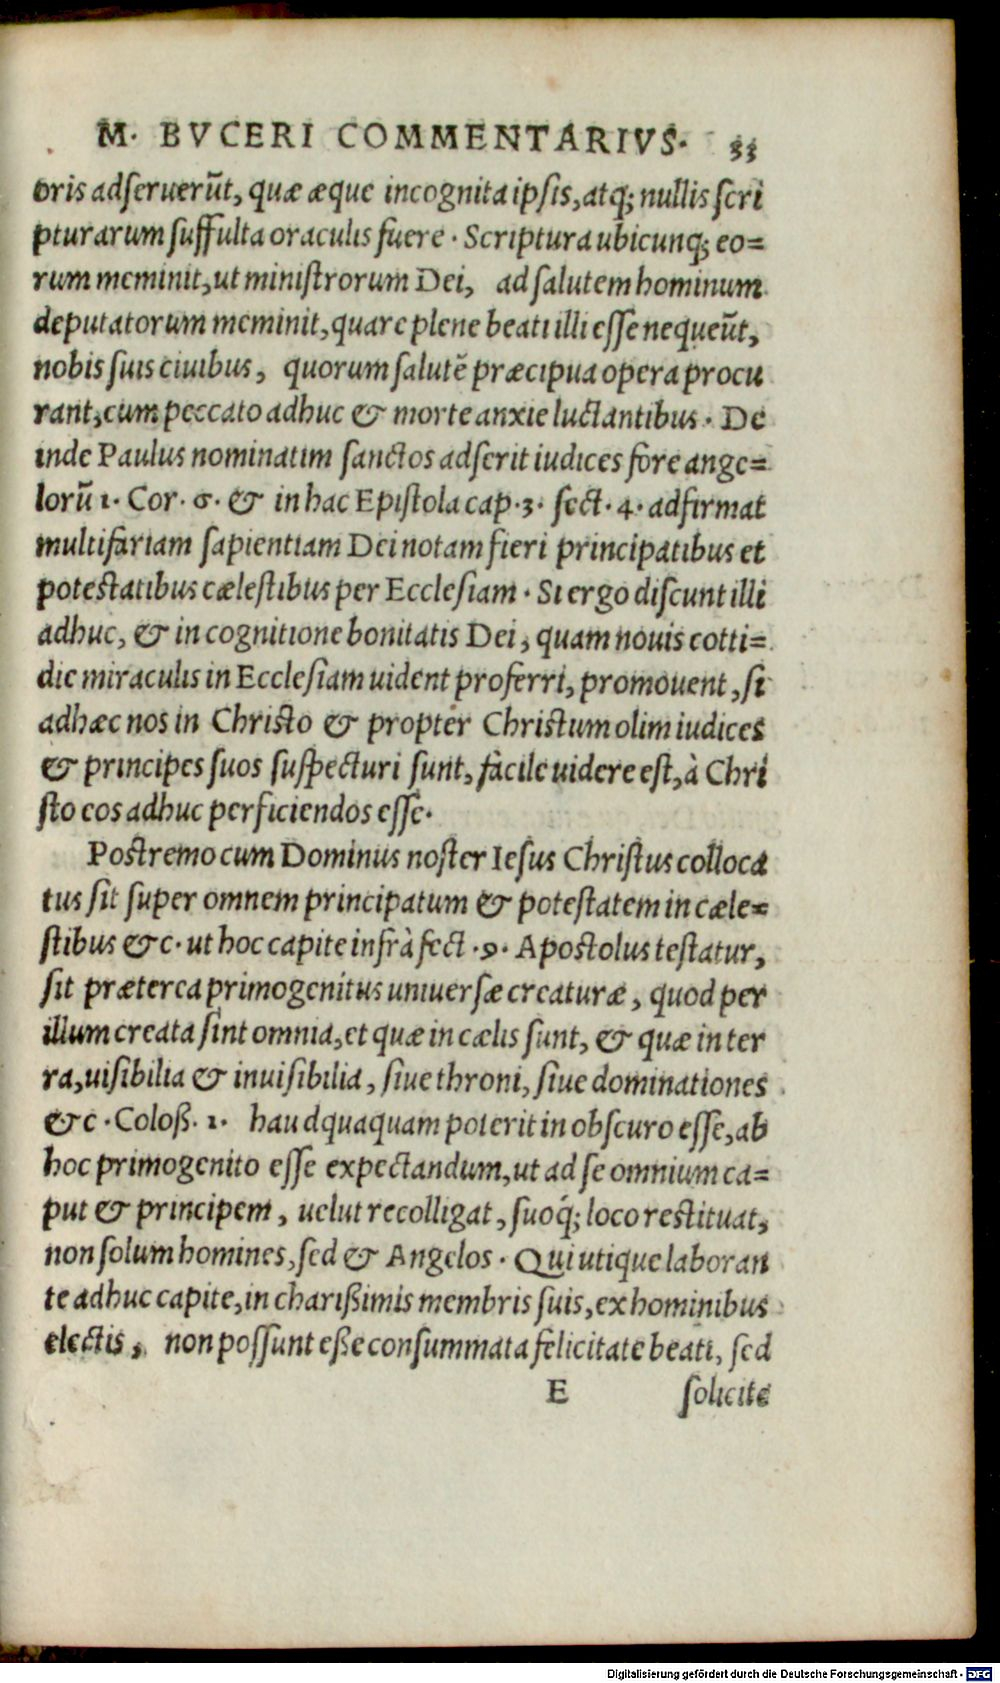 M. BVCERI COMMENTARIVS. 33
oris adseruerūt, quæ æque incognita ipsis, atq; nullis scri
pturarum suffulta oraculis fuere. Scriptura ubicunq; eo=
rum meminit, ut ministrorum Dei, ad salutem hominum
deputatorum meminit, quare plene beati illi esse nequeūt,
nobis suis ciuibus, quorum salutē præcipua opera procu
rant, cum peccato adhuc & morte anxie luctantibus. De
inde Paulus nominatim sanctos adserit iudices fore ange=
lorū 1. Cor. 6. & in hac Epistola cap. 3. sect. 4. adfirmat
multifariam sapientiam Dei notam fieri principatibus et
potestatibus cælestibus per Ecclesiam. Si ergo discunt illi
adhuc, & in cognitione bonitatis Dei, quam nouis cotti=
die miraculis in Ecclesiam uident proferri, promouent, si
adhæc nos in Christo & propter Christum olim iudices
& principes suos suspecturi sunt, fàcile uidere est, à Chri
sto eos adhuc perficiendos esse.
Postremo cum Dominus noster Iesus Christus colloca
tus sit super omnem principatum & potestatem in cæle=
stibus &c. ut hoc capite infrà sect. 9. Apostolus testatur,
sit præterea primogenitus uniuersæ creaturæ, quod per
illum creata sint omnia, et quæ in cælis sunt, & quæ in ter
ra, uisibilia & inuisibilia, siue throni, siue dominationes
&c. Coloß. 1. haudquaquam poterit in obscuro esse, ab
hoc primogenito esse expectandum, ut ad se omnium ca=
put & principem, uelut recolligat, suoq́; loco restituat,
non solum homines, sed & Angelos. Qui utique laboran
te adhuc capite, in charißimis membris suis, ex hominibus
electis, non possunt eße consummata felicitate beati, sed
E solicite
Digitalisierung gefördert durch die Deutsche Forschungsgemeinschaft - DFG